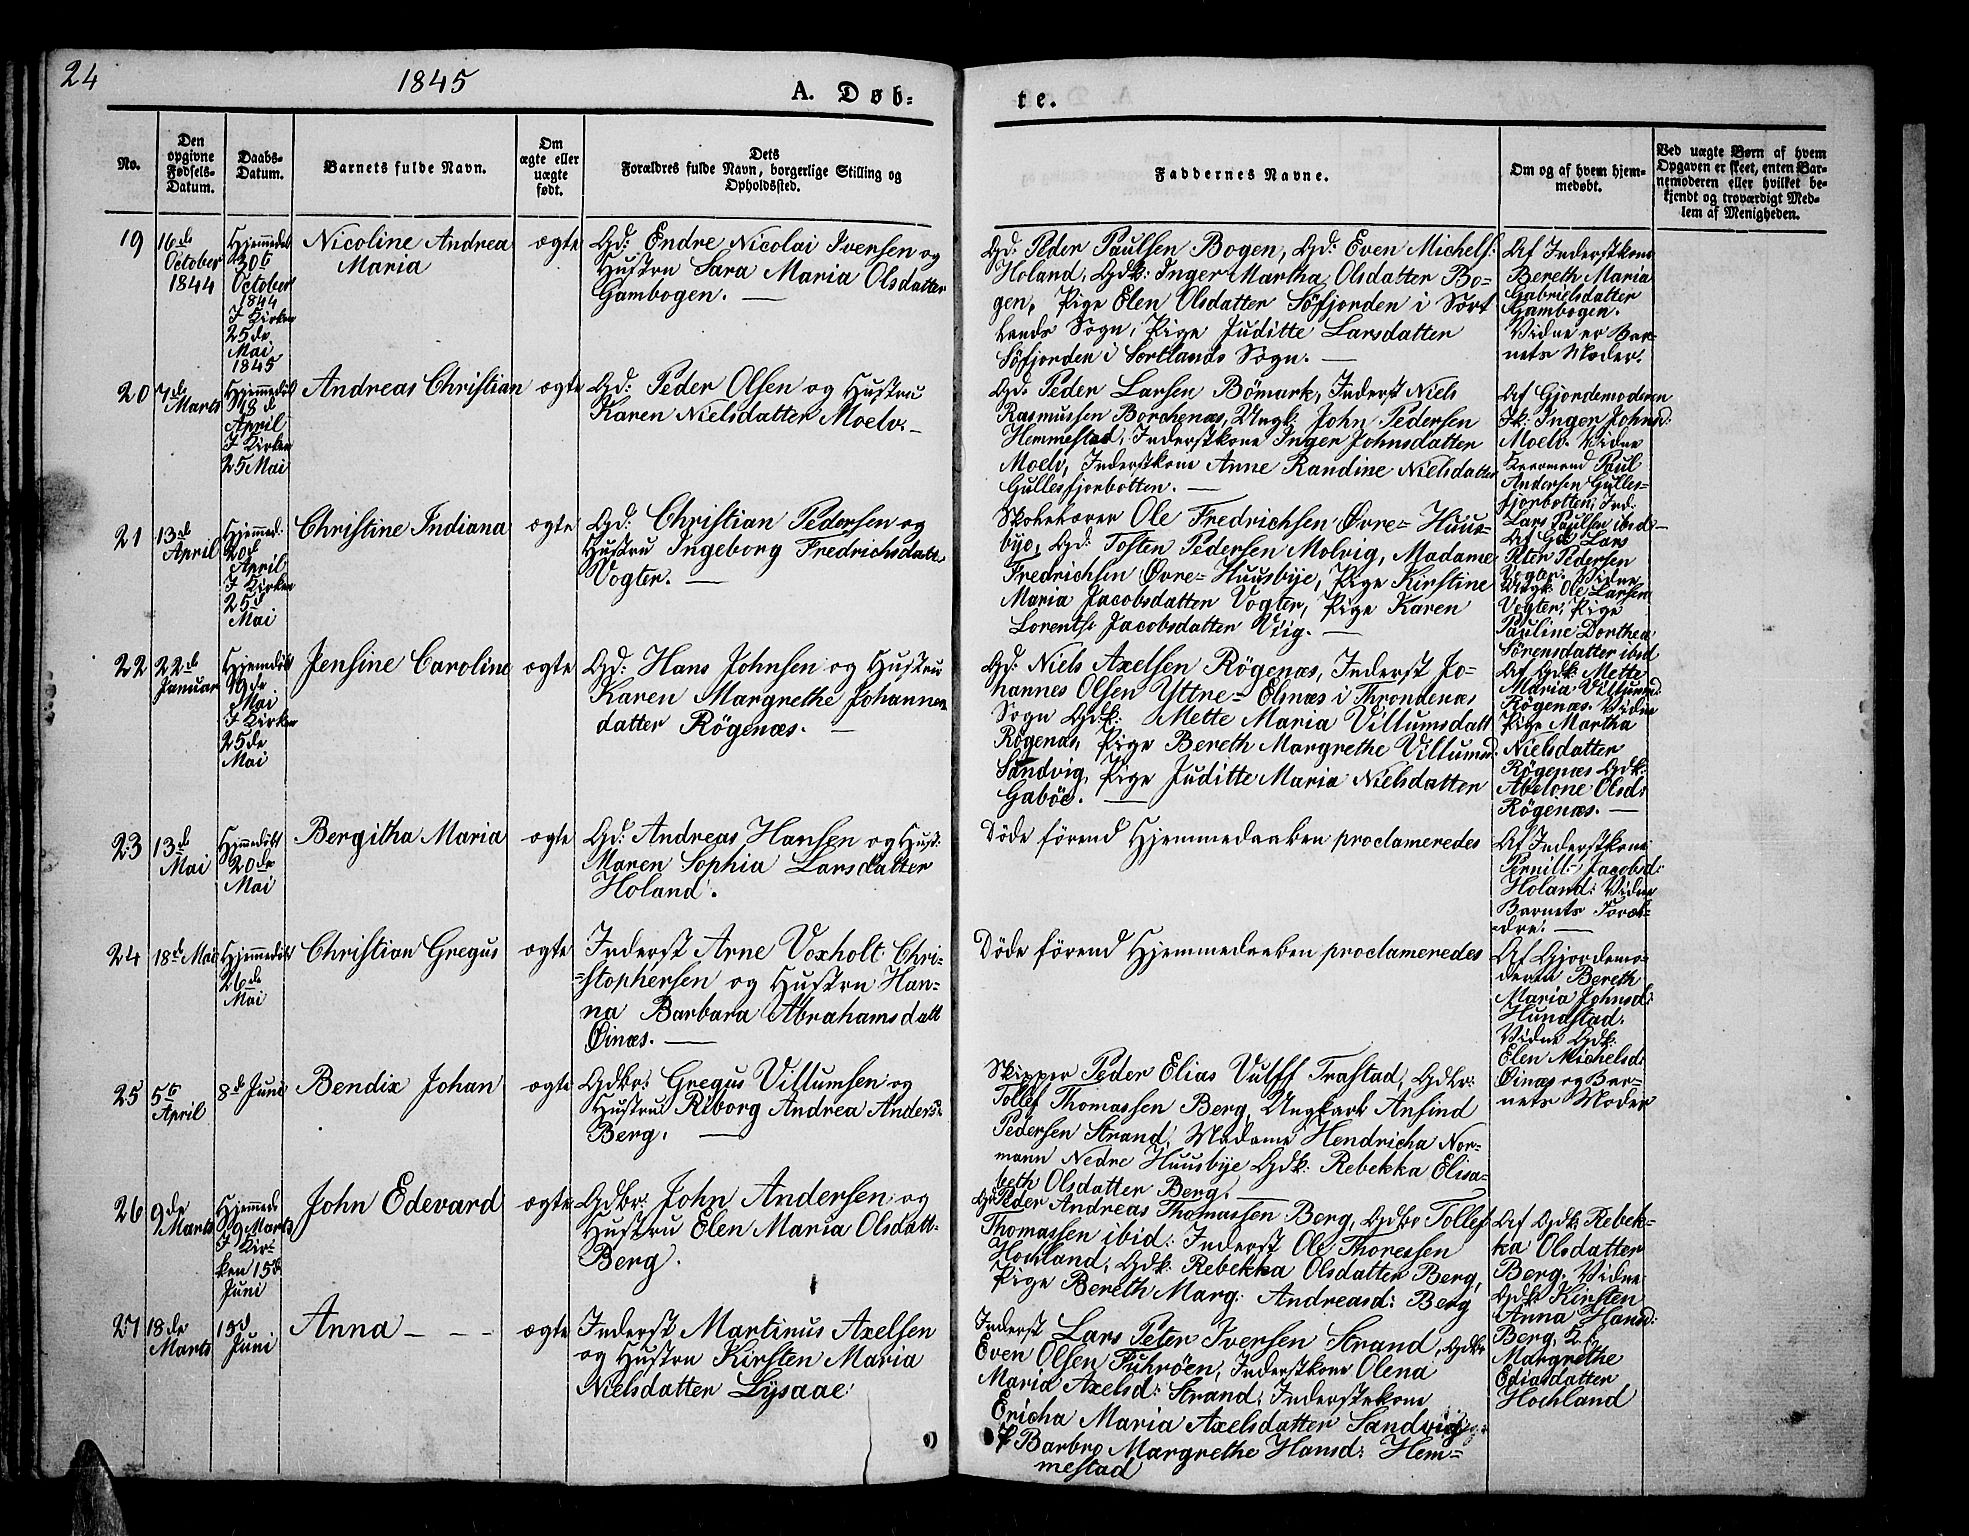 24
1845
A. Døb-
te.
No.
Den
opgivne
Fødsels-
Datum.
Daabs-
Datum.
Barnets fulde Navn.
Om
ægte eller
uægte
født.
Dets
Forældres fulde Navn, borgerlige Stilling og
Opholdssted.
Faddernes Navne.
Om og af hvem hjem-
medøbt.
Ved uægte Børn af hvem
Opgaven er skeet, enten Bar-
nemoderen eller hvilket be-
kjendt og troværdigt Med-
lem af Menigheden.
19
16de
October
1844
Hjemmedøb
30te
October
1844
I Kirken
25de
Mai
1845
Nicoline Andrea
Maria
ægte
Gd: Endre Nicolai Iversen og
Hustru Sara Maria Olsdatter
Gambogen. —
Gd: Peder Paulsen Bogen, Gd: Even Michels:
Holand, Gdk: Inger Martha Olsdatter Bo-
gen, Pige Elen Olsdatter Söfjorden i Sort
lands Sogn, Pige Juditte Larsdatter
Söfjorden i Sortlands Sogn. —
Af Inderstkone
Bereth Maria
Gabrielsdatter
Gambogen.
Vidne er Bar-
nets Moder.
20
7de
Marts
Hjemmedøb
18de
April
I Kirken
25 Mai
Andreas Christian
ægte
Gd: Peder Olsen og Hustru
Karen Nielsdatter Moelv. —
Gd: Peder Larsen Bömark, Inderst Niels
Rasmussen Borchenæs, Ungk: John Pedersen
Hemmestad, Inderstkone Inger Johnsdatter
Moelv, Inderstkone Anne Randine Nielsdatter
Gullesfjorbotten. —
Af Gjordemoderen
Ik: Inger Johnsd:
Moelv. Vidne
Kaarmand Paul
Andersen Gulles-
fjorbotten, Ind.
Lars Paulsen ibid —
21
13de
April
Hjemmed:
20de
April
I Kirken
25de
Mai
Christine Indiana
ægte
Gd: Christian Pedersen og
Hustru Ingeborg Fredrichsdatter
Vogter. —
Skoleholder Ole Fredrichsen Øvre-Huus-
bye, Gd: Tosten Pedersen Molvig, Madame
Fredrichsen Øvre-Huusbye, Pige Kirstine
Maria Jacobsdatter Vogter, Pige Karen
Lorents: Jacobsdatter Viig. —
Af Gd: Lars
Peter Pedersen
Vogter. Vidne
Ungk: Ole Larsen
Vogter, Pige
Pauline Dorthea
Sörensdatter ibid
22
22de
Januar
Hjemmedøbt
9de
Mai
I Kirken
25de
Mai
Jensine Caroline
ægte
Gd: Hans Johnsen og Hustru
Karen Margrethe Johannes
datter Rögenæs. —
Gd: Niels Axelsen Rögenæs, Inderst Jo-
hannes Olsen Yttre-Elnæs i Throndenæs
Sogn Gdk: Mette Maria Villumsdatt
Rögenæs, Pige Bereth Margrethe Villumsd.
Sandvig, Pige Juditte Maria Nielsdatter
Gaböe. —
Af Gdk: Mette
Maria Villumsd:
Rögenæs. Vidne
Pige Martha
Nielsdatter
Rögenæs Gdk:
Abelone Olsd:
Rögenæs. —
23
13de
Mai
Hjemmedøbt
20de
Mai
Bergitha Maria
ægte
Gd: Andreas Hansen og Hust:
Maren Sophia Larsdatter
Holand.
Døde førend Hjemmedaaben proclameredes
Af Inderstkone
Pernill: Jacobsd:
Holand: Vidne
Barnets Foræl-
dre. —
24
18de Mai
Hjemmedøbt
26de
Mai
Christian Gregus
ægte
Inderst Arne Voxholt Chri-
=stophersen og Hustru Han-
na Barbara Abrahamsdatt
Øinæs. —
Døde førend Hjemmedaaben proclameredes
Af Gjordemo-
deren Bereth
Maria Johnsd:
Hundstad.
Vidne Gdk:
Elen Michelsd:
Øinæs og Bar-
nets Moder
25
5te
April
8de Juni
Bendix Johan
ægte
Gdbr: Gregus Villumsen og
Hustru Riborg Andrea Andersd:
Berg. —
Skipper Peder Elias Vulff Trastad, Gdbr:
Tollef Thomassen Berg, Ungkarl Ansind
Pedersen Strand, Madame Hendricha Nor-
mann Nedre Huusbye Gdk: Rebekka Elisa-
beth Olsdatter Berg. —
26
9de
Marts
Hjemmed:
9 Marts
I Kir-
ken 15de
Juni
John Edevard
ægte
Gdbr: John Andersen og
Hustru Elen Maria Olsdatt-
Berg.
Gd: Peder Andreas Thomassen Berg, Gdbr Tollef
Thomassen ibid: Inderst Ole Thoressen
Hochland, Gdk: Rebekka Olsdatter Berg,
Pige Bereth Marg: Andreasd: Berg
Af Gdk: Rebek-
ka Olsdatter
Berg. Vidne
Gdk Kirsten
Anna Hansd:
Berg,
Margrethe
Eliasdatter
Hochland
27
18de
Marts
15d
Juni
Anna - - -
ægte
Inderst Martinus Axelsen
og Hustru Kirsten Maria
Nielsdatter Lysaae:
Inderst Lars Peter Iversen Strand, Gdbr
Even Olsen Fuhröen, Inderstkone Olena
Maria Axelsd: Strand, Inderstekone
Ericha Maria Axelsdatter Sandvig
P Barbro Margrethe Hansd: Hem-
mestad